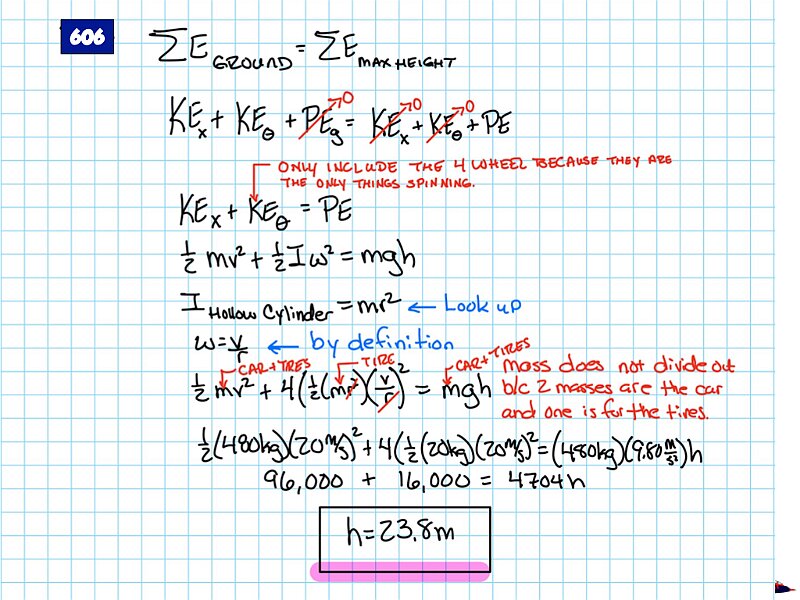 606
ΣE GROUND = ΣE MAX HEIGHT
KEx + KEθ + PEg→0 = KEx→0 + KEθ→0 + PE
ONLY INCLUDE THE 4 WHEEL BECAUSE THEY ARE
THE ONLY THINGS SPINNING.
KEx + KEθ = PE
1/2 mv² + 1/2 Iω² = mgh
I Hollow Cylinder = mr² ← Look up
ω = v/r ← by definition
CAR + TIRES TIRE CAR + TIRES
1/2 mv² + 4(1/2(mr²)(v/r)² = mgh
mass does not divide out
b/c 2 masses are the car
and one is for the tires.
1/2(480kg)(20m/s)² + 4(1/2(20kg)(20m/s)² = (480kg)(9.80 m/s²)h
96,000 + 16,000 = 4704h
h = 23.8m